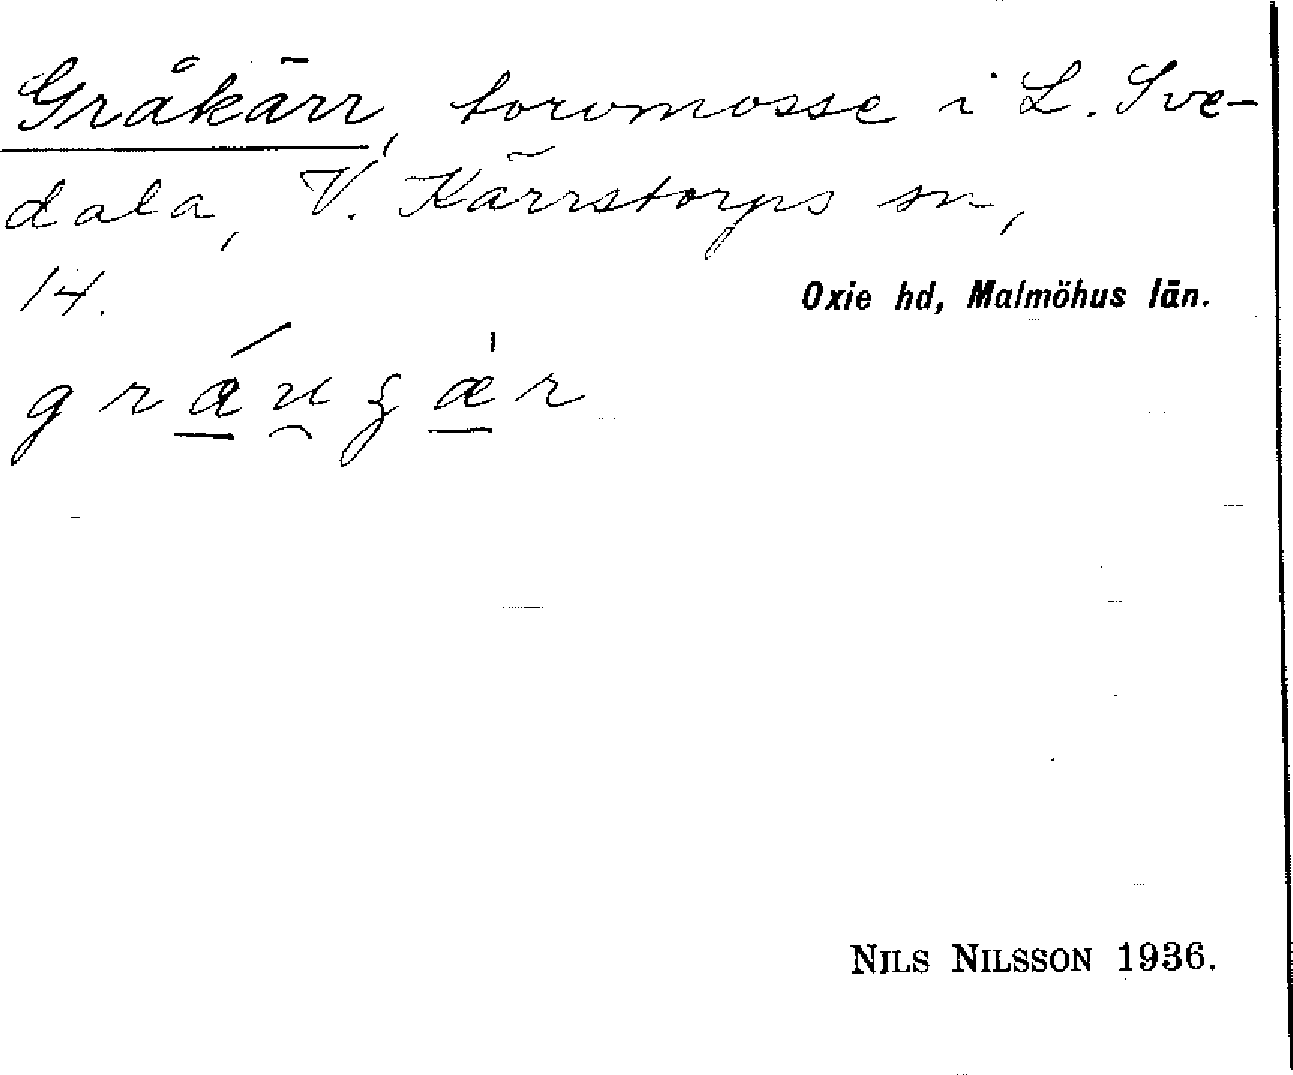 Gråkärr, torvmosse i L. Sve-
dala, V. Kärrstorps sn,
14.
Oxie hd, Malmöhus län.
NILS NILSSON 1936.